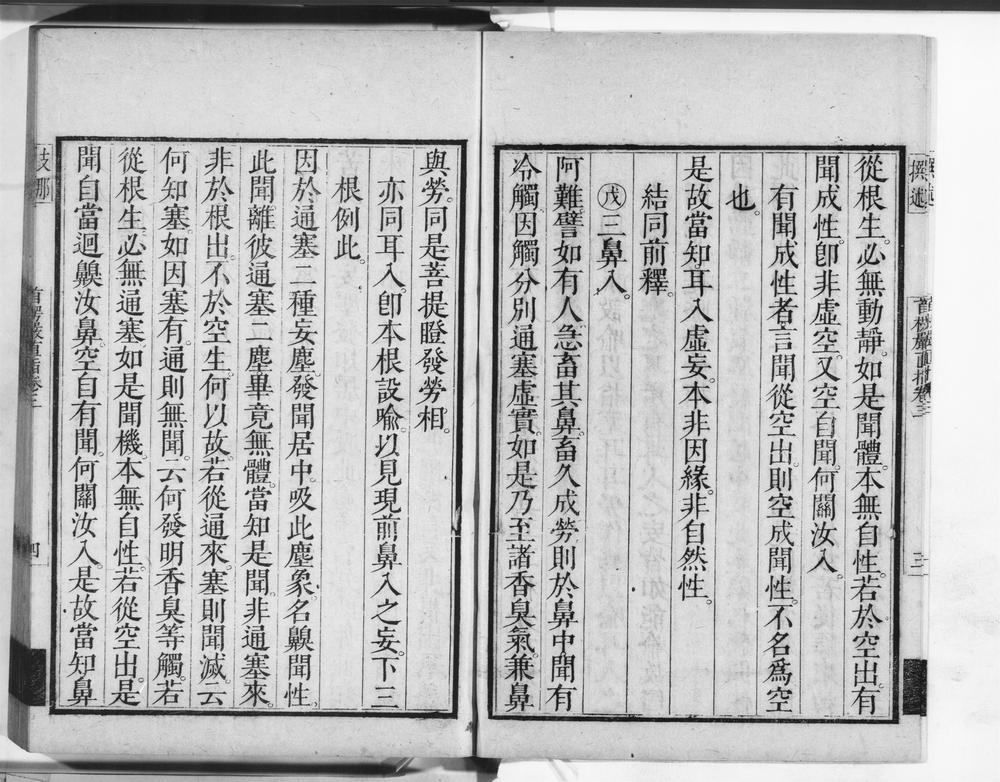 撰述
首楞嚴直指卷三
三
從根生。必無動靜。如是聞體。本無自性。若於空出。有
聞成性。卽非虛空。又空自聞。何關汝入。
有聞成性者。言聞從空出。則空成聞性。不名爲空
也。
是故當知。耳入虛妄。本非因緣。非自然性。
結同前釋。
戊三鼻入。
阿難。譬如有人。急畜其鼻。畜久成勞。則於鼻中。聞有
冷觸。因觸分別。通塞虛實。如是乃至諸香臭氣。兼鼻
與勞。同是菩提瞪發勞相。
亦同耳入。卽本根設喻。以見現前鼻入之妄。下三
根例此。
因於通塞二種妄塵。發聞居中。吸此塵象。名齅聞性。
此聞離彼通塞二塵。畢竟無體。當知是聞。非通塞來。
非於根出。不於空生。何以故。若從通來。塞則聞滅。云
何知塞。如因塞有。通則無聞。云何發明香臭等觸。若
從根生。必無通塞。如是聞機。本無自性。若從空出。是
聞自當迴齅汝鼻。空自有聞。何關汝入。是故當知。鼻
支那
首楞嚴直指卷三
四